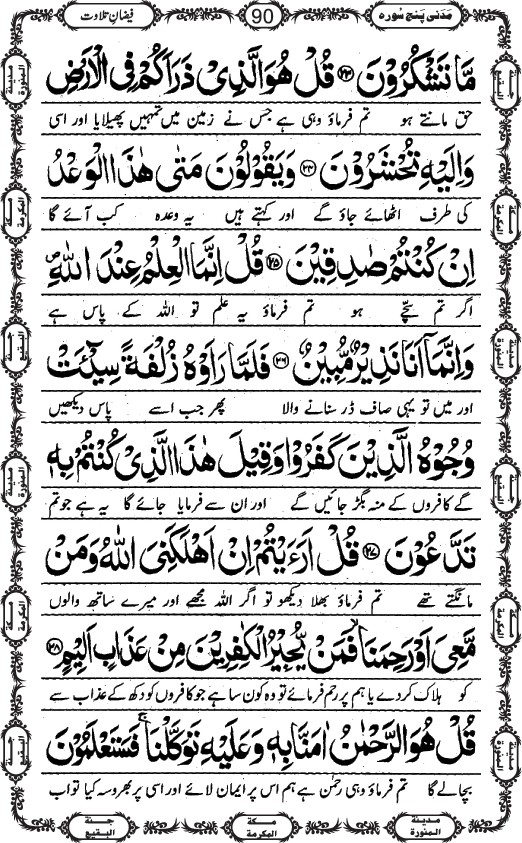 مَدَنی پَنج سُورہ
90
فیضانِ تلاوت
مَّا تَشْكُرُوْنَ ﴿۲۳﴾ قُلْ هُوَ الَّذِیْ ذَرَاَكُمْ فِی الْاَرْضِ
حق مانتے ہو تم فرماؤ وہی ہے جس نے زمین میں تمہیں پھیلایا اور اسی
وَ اِلَیْهِ تُحْشَرُوْنَ ﴿۲۴﴾ وَ یَقُوْلُوْنَ مَتٰى هٰذَا الْوَعْدُ
کی طرف اٹھائے جاؤ گے اور کہتے ہیں یہ وعدہ کب آئے گا
اِنْ كُنْتُمْ صٰدِقِیْنَ ﴿۲۵﴾ قُلْ اِنَّمَا الْعِلْمُ عِنْدَ اللّٰهِ
اگر تم سچّے ہو تم فرماؤ یہ علم تو اللہ کے پاس ہے
وَ اِنَّمَاۤ اَنَا نَذِیْرٌ مُّبِیْنٌ ﴿۲۶﴾ فَلَمَّا رَاَوْهُ زُلْفَةً سِیْٓــٴَـتْ
اور میں تو یہی صاف ڈر سنانے والا پھر جب اسے پاس دیکھیں
وُجُوْهُ الَّذِیْنَ كَفَرُوْا وَ قِیْلَ هٰذَا الَّذِیْ كُنْتُمْ بِهٖ
گے کافروں کے منہ بگڑ جائیں گے اور ان سے فرمایا جائے گا یہ ہے جو تم
تَدَّعُوْنَ ﴿۲۷﴾ قُلْ اَرَءَیْتُمْ اِنْ اَهْلَكَنِیَ اللّٰهُ وَ مَنْ
مانگتے تھے تم فرماؤ بھلا دیکھو تو اگر اللہ مجھے اور میرے ساتھ والوں
مَّعِیَ اَوْ رَحِمَنَا ۙ فَمَنْ یُّجِیْرُ الْكٰفِرِیْنَ مِنْ عَذَابٍ اَلِیْمٍ ﴿۲۸﴾
کو ہلاک کردے یا ہم پر رحم فرمائے تو وہ کون سا ہے جو کافروں کو دکھ کے عذاب سے
قُلْ هُوَ الرَّحْمٰنُ اٰمَنَّا بِهٖ وَ عَلَیْهِ تَوَكَّلْنَا ۚ فَسَتَعْلَمُوْنَ
بچالے گا تم فرماؤ وہی رحمٰن ہے ہم اس پر ایمان لائے اور اسی پر بھروسہ کیا تو اب
مدینۃ المنورۃ
مکۃ المکرمۃ
جنۃ البقیع